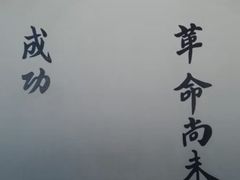 革命尚未
成功